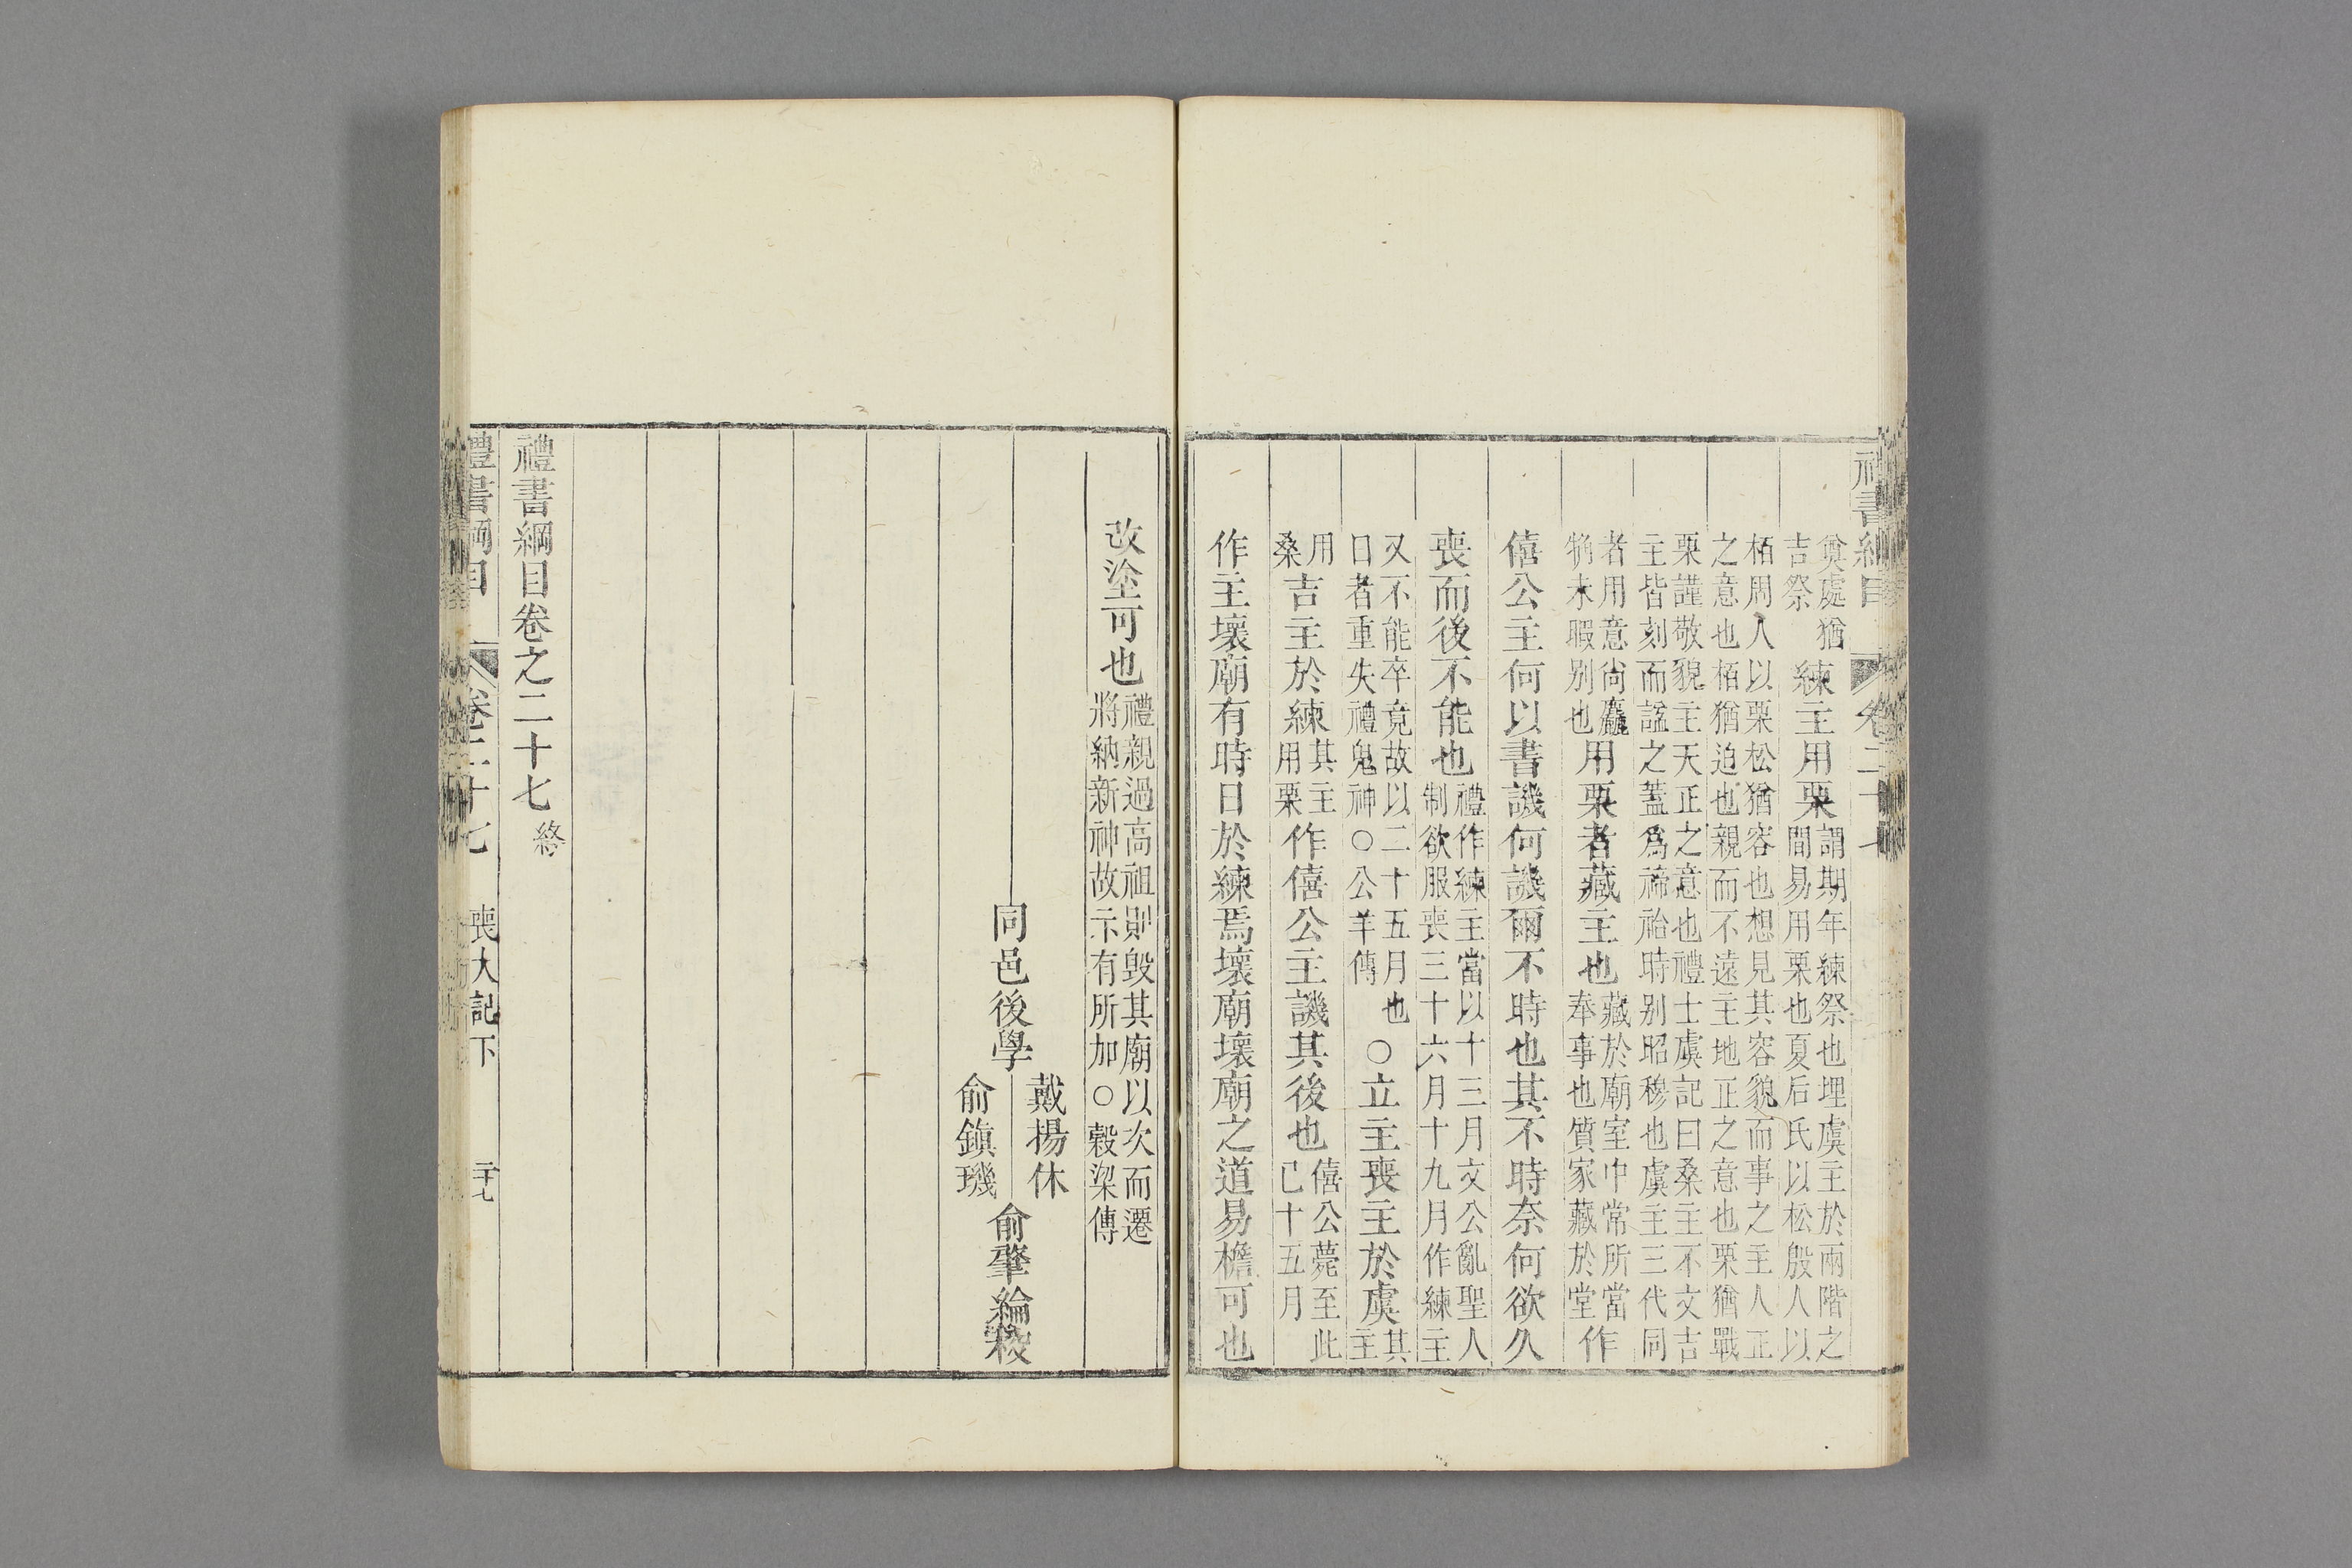 禮書綱目 卷二十七
奠處猶吉祭練主用栗謂期年練祭也埋虞主於兩階之間易用栗也夏后氏以松殷人以
栢周人以栗松猶容也想見其容貌而事之主人正之意也栢猶迫也親而不遠主地正之意也栗猶戰
栗謹敬貌主天正之意也禮士虞記曰桑主不文吉主皆刻而諡之蓋爲禘祫時别昭穆也虞主三代同
者用意尚麤觕未暇别也用栗者藏主也藏於廟室中常所當奉事也質家藏於堂作
僖公主何以書譏何譏爾不時也其不時奈何欲久
喪而後不能也禮作練主當以十三月文公亂聖人制欲服喪三十六月十九月作練主
又不能卒竟故以二十五月也日者重失禮鬼神○公羊傳○立主喪主於虞其主
用桑吉主於練其主用栗作僖公主譏其後也僖公薨至此已十五月
作主壞廟有時日於練焉壞廟壞廟之道易檐可也
改塗可也禮親過高祖則毀其廟以次而遷將納新神故示有所加○榖梁傳
同邑後學戴揚休俞鎮璣俞肇綸校
禮書綱目卷之二十七終
禮書綱目 卷二十七 喪大記下 二十七